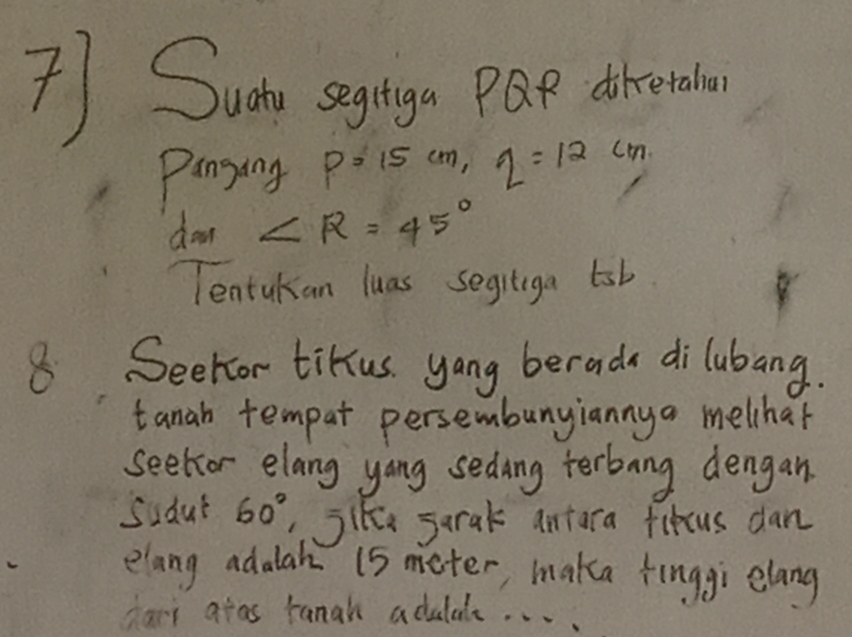 7) Suatu segitiga PQR diketahui
Pangang p = 15 cm, q = 12 cm.
dan ∠ R = 45°
Tentukan luas segitiga tsb
8 Seekor tikus yang berada di lubang.
tanah tempat persembunyiannya melihat
seekor elang yang sedang terbang dengan
sudut 60°, jika jarak antara tikus dan
elang adalah 15 meter, maka tinggi elang
dari atas tanah adalah ....